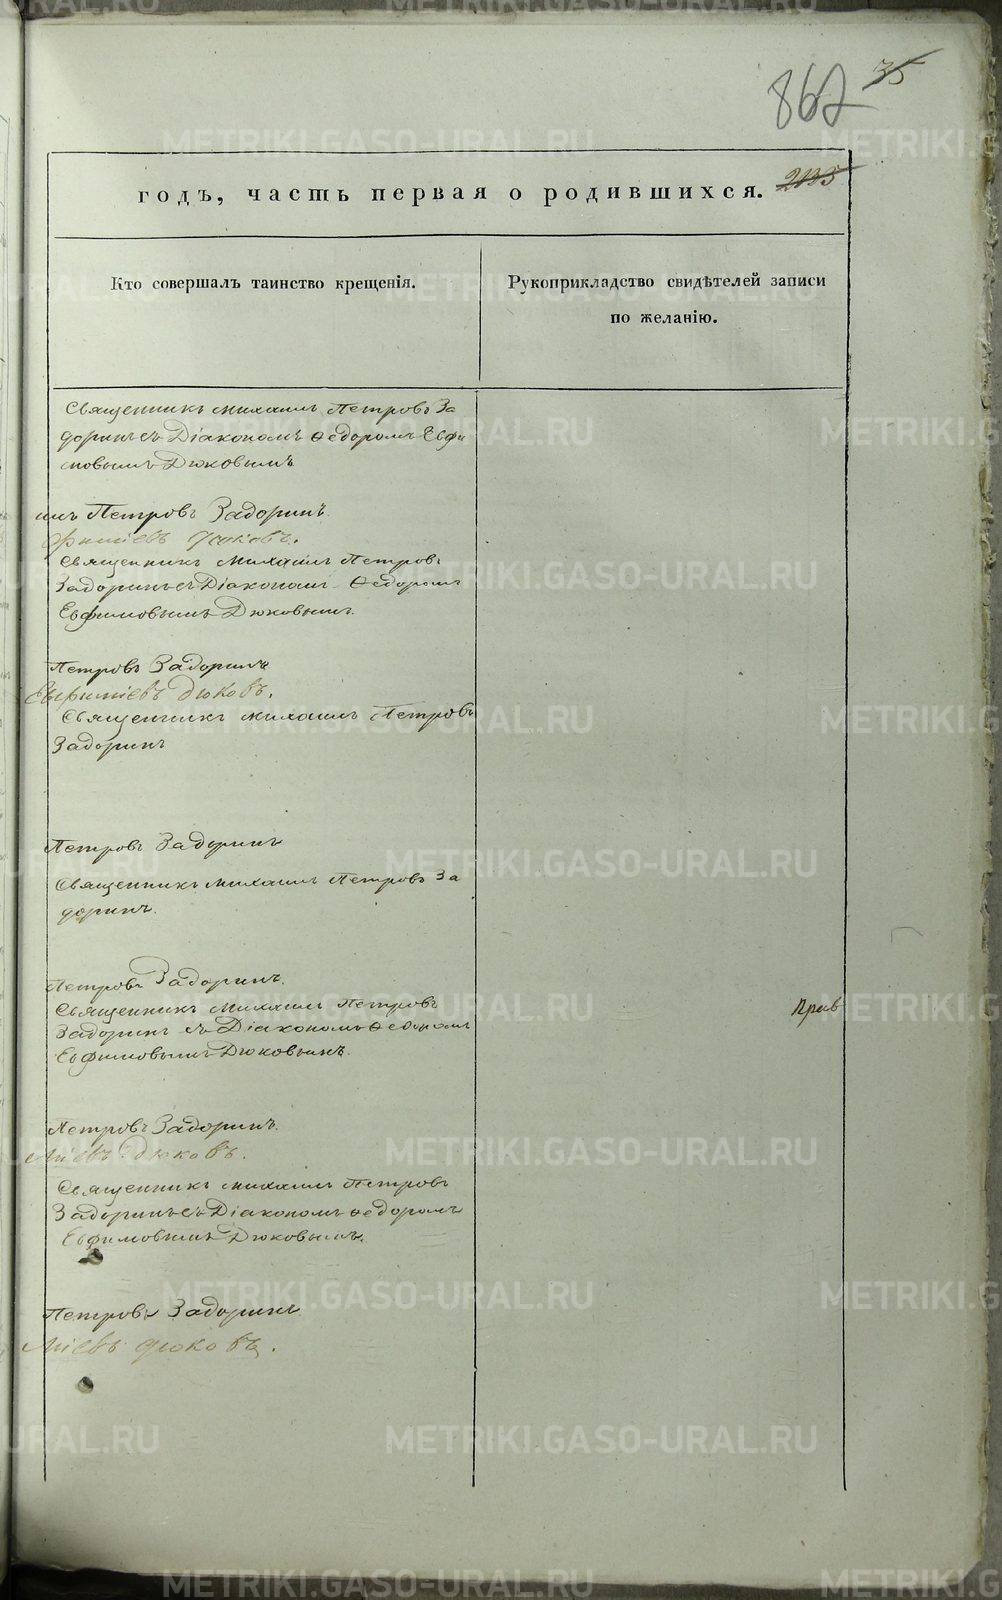 862 35
годъ, часть первая о родившихся. 2035
Кто совершалъ таинство крещенія.
Рукоприкладство свидѣтелей записи
по желанію.
Священникъ Михаилъ Петровъ За
доринъ съ Діакономъ Ѳедоромъ Евфи
мовымъ Дюковымъ
илъ Петровъ Задоринъ.
фиміевъ Дюковъ.
Священникъ Михаилъ Петровъ
Задоринъ съ Діакономъ Ѳедоромъ
Евфимовымъ Дюковымъ.
Петровъ Задоринъ
Евфиміевъ Дюковъ.
Священникъ Михаилъ Петровъ
Задоринъ
Петровъ Задоринъ
Священникъ Михаилъ Петровъ За
доринъ.
Петровъ Задоринъ.
Священникъ Михаилъ Петровъ
Задоринъ съ Діакономъ Ѳедоромъ
Евфимовымъ Дюковымъ.
Прав
Петровъ Задоринъ.
міевъ Дюковъ.
Священникъ Михаилъ Петровъ
Задоринъ съ Діакономъ Ѳедоромъ
Евфимовымъ Дюковымъ.
Петровъ Задоринъ
міевъ Дюковъ.
METRIKI.GASO-URAL.RU